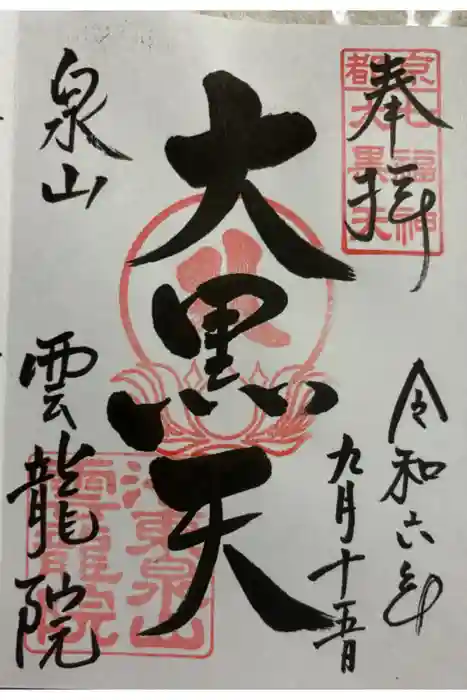 奉拝
京都
七福神
大黒天
令和六年
九月十五日
大黒天
泉山
雲龍院
洛東泉山
雲龍院